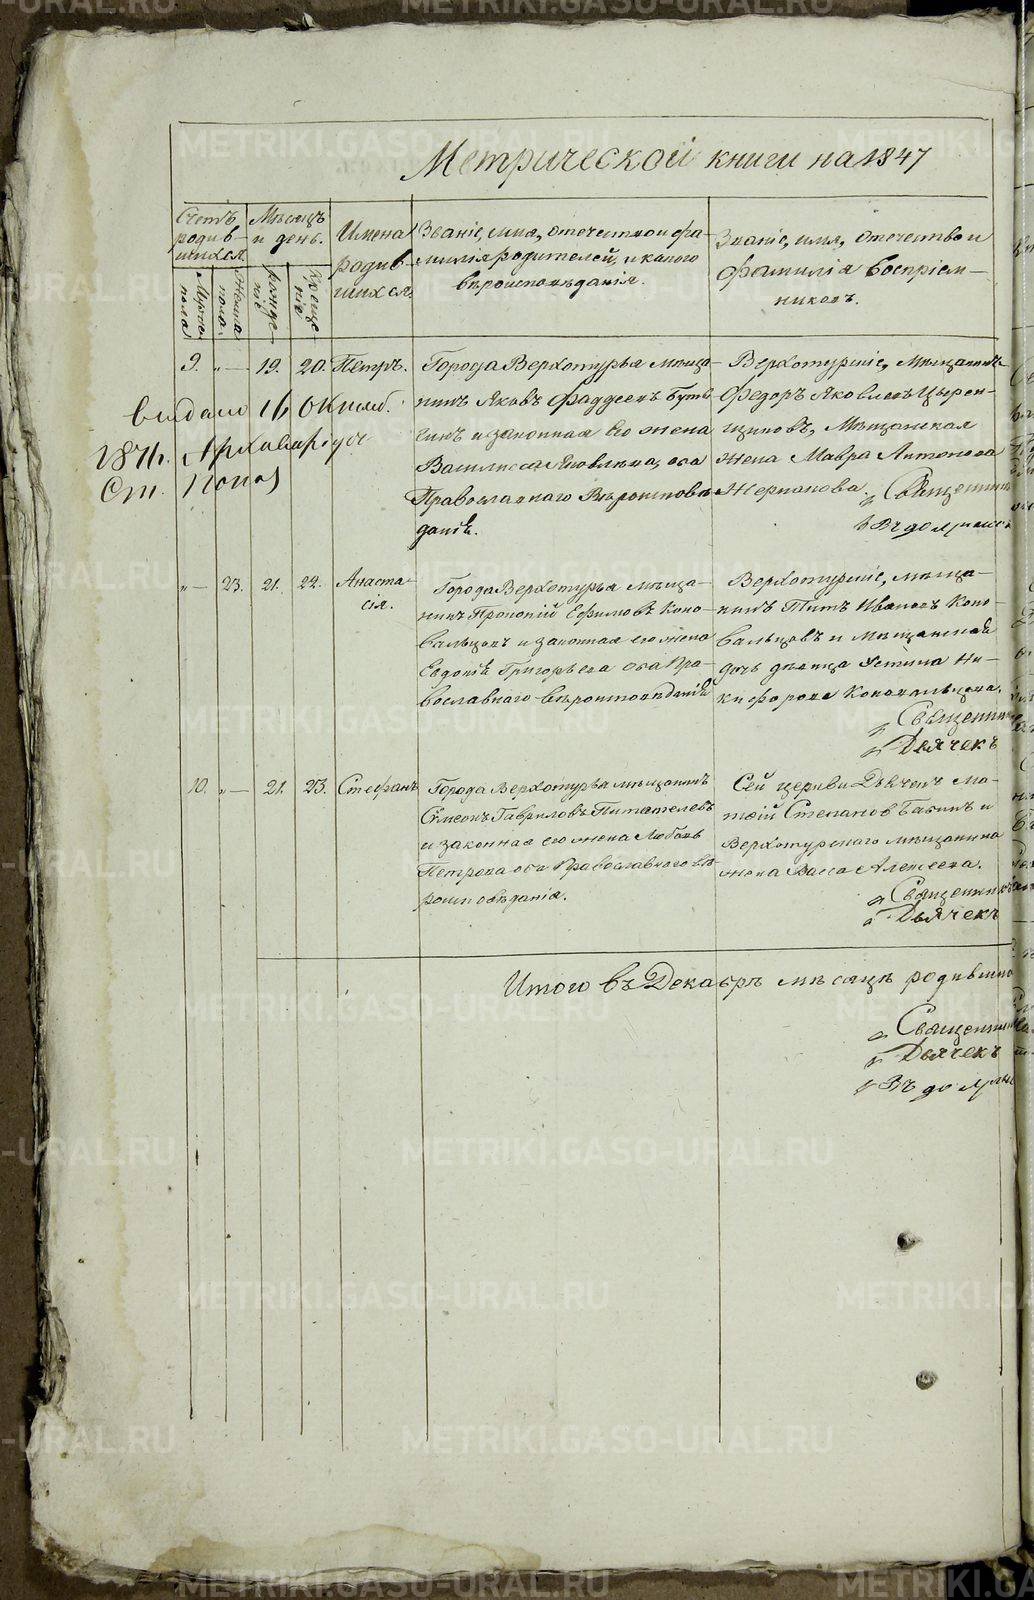 Метрической книги на 1847
Счетъ родив-шихся.
Мѣсяцъ и день.
Мужеска пола
Женска пола.
Рожде-ніе
Креще-ніе
Имена родив-шихся.
Званіе, имя, отечество и фа-
милія родителей, и какого
вѣроисповѣданія.
Званіе, имя, отечество и
фамилія воспріем-
никовъ.
9. „— 19. 20. Петръ.
Города Верхотурья мѣща-
нинъ Яковъ Фаддеевъ
и законная его жена
Василисса Яковлева, оба
Православнаго Вѣроисповѣ-
данія.
Верхотурскіе, Мѣщанинъ
Федоръ Яковлевъ
щиковъ, Мѣщанская
жена Мавра Антонова
Священникъ
Въ должно
выдано 16 Октяб.
187
Ст. Попов
„— 23. 21. 22. Анаста-
сія.
Города Верхотурья мѣща-
нинъ Прокопій Ефимовъ Коно-
вальцовъ и законная его жена
Евдокія Григорьева оба Пра-
вославнаго вѣроисповѣданія
Верхотурскіе, мѣща-
нинъ Титъ Ивановъ Коно-
вальцовъ и мѣщанская
дочь дѣвица Устина Ни-
кифорова Коновальцова.
Священникъ
Дьячекъ
10. „— 21. 23. Стефанъ
Города Верхотурья мѣщанинъ
Симеонъ Гавриловъ Питателевъ
и законная его жена Любовь
Петрова оба Православнаго вѣ-
роисповѣданія.
Сей церкви Дьячекъ Ма-
тѳій Степановъ Бабинъ и
Верхотурскаго мѣщанина
жена Васса Алексеева.
Священникъ
Дьячекъ
Итого въ Декабрѣ мѣсяцѣ родивших
Священник
Дьячекъ
Въ должн
METRIKI.GASO-URAL.RU